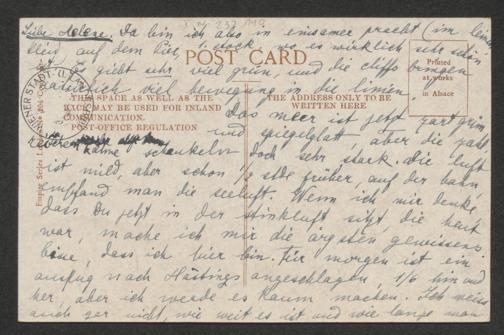 Liebe Helene. Da bin ich also in einsamer pracht (im leinen
kleid auf dem lies, 1. stock, wo es wirklich sehr schön
ist. Es giebt sehr viel grün, und die cliffs bringen
natürlich viel bewegung in die linien.
POST CARD
Printed
at works
in Alsace
THIS SPACE AS WELL AS THE
BACK MAY BE USED FOR INLAND
COMMUNICATION.
POST-OFFICE REGULATION
THE ADDRESS ONLY TO BE
WRITTEN HERE
Das meer ist jetzt zart grün
und spiegelglatt, aber die zahl-
reichen
kähne schaukeln doch sehr stark. die luft
ist mild, aber schon 1/2 stde früher, auf der bahn,
empfand man die seeluft. Wenn ich mir denke,
dass Du jetzt in der stinkluft sitzt, die heut
war, mache ich mir die ärgsten gewissens-
bisse, dass ich hier bin. Für morgen ist ein
ausflug nach Hastings angeschlagen, 1/6 hin und
her, aber ich werde es kaum machen. Ich weiss
auch gar nicht, wie weit es ist und wie lange man